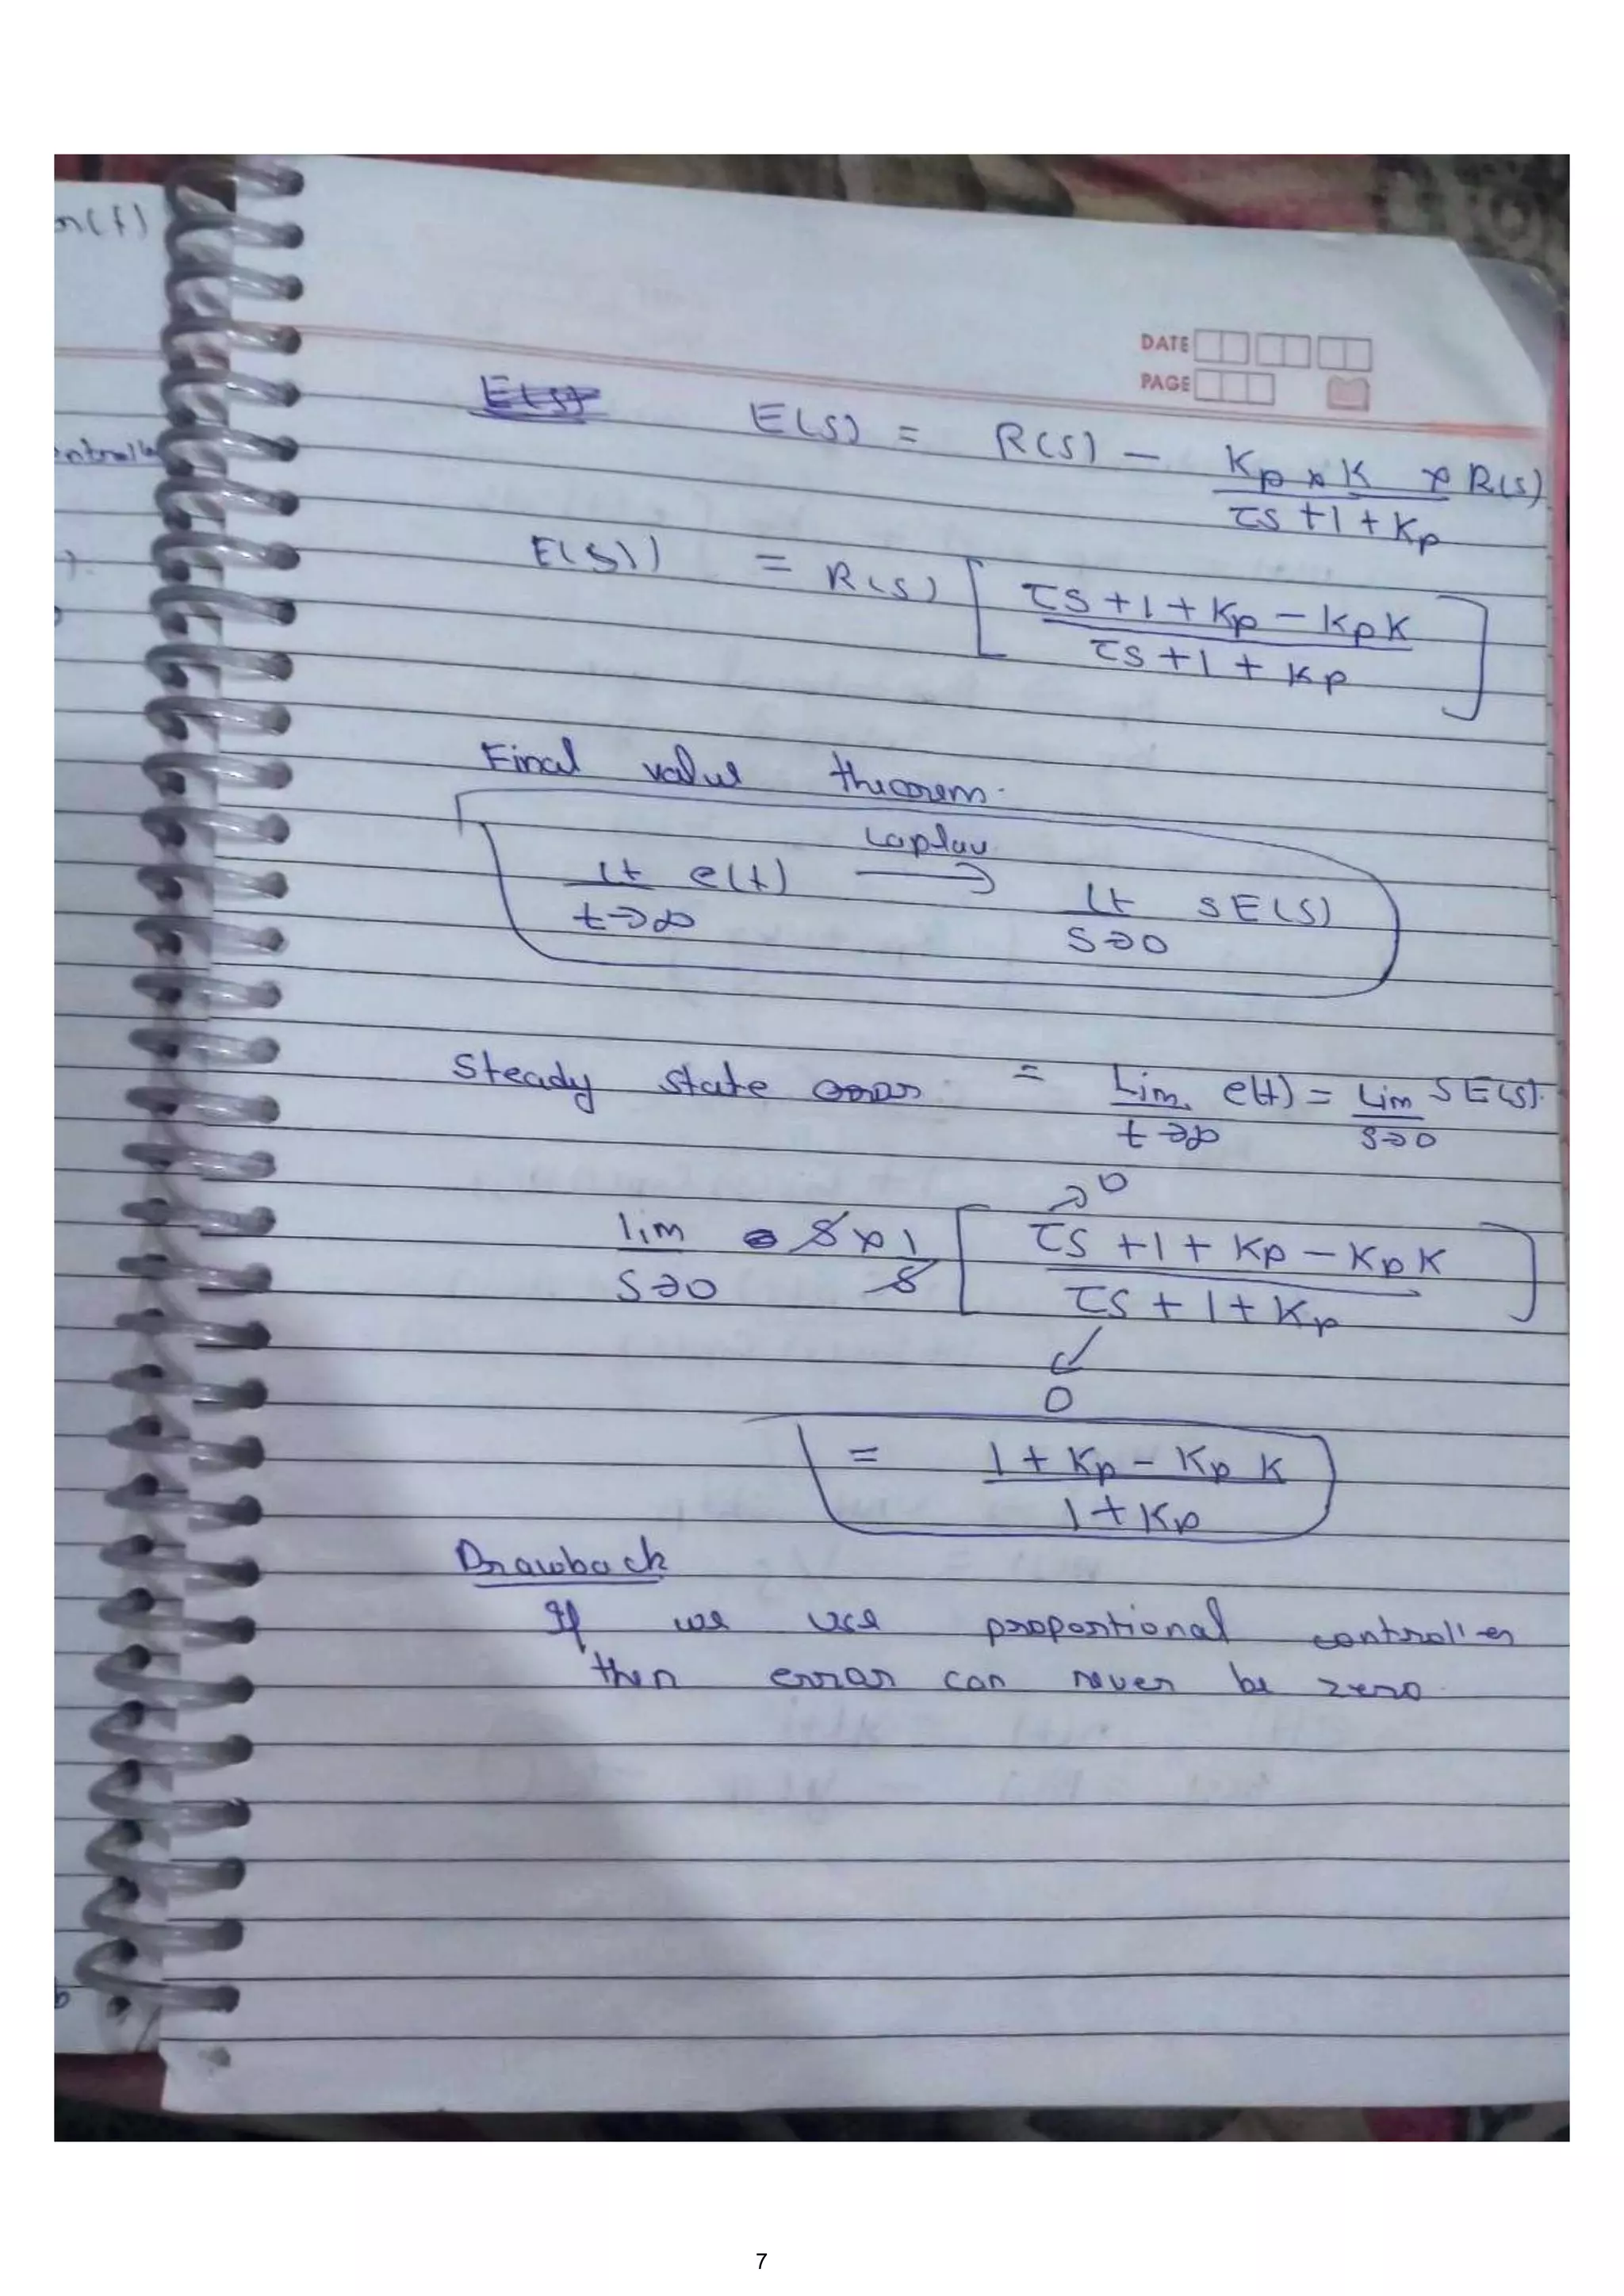 n(t)
DATE
PAGE
E(s) E(s) = R(s) - Kp x K x R(s)
τs + 1 + Kp
E(s)) = R(s) [ τs + 1 + Kp - KpK
τs + 1 + Kp ]
Final value theorem.
Laplau
lt e(t) → lt sE(s)
t→∞ s→0
Steady state error = Lim. e(t) = Lim SE(s).
t→∞ s→0
→0
lim s x 1 [ τs + 1 + Kp - KpK ]
s→0 s τs + 1 + Kp
↙
0
= 1 + Kp - Kp K
1 + Kp
Drawback
If we use proportional controller
then error can never be zero.
7